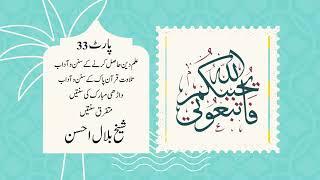 پارٹ 33
علم دین حاصل کرنے کے سنن و آداب
تلاوت قرآن پاک کے سنن و آداب
داڑھی مبارک کی سنتیں
متفرق سنتیں
شیخ بلال احسن
فاتبعوني يحببكم الله